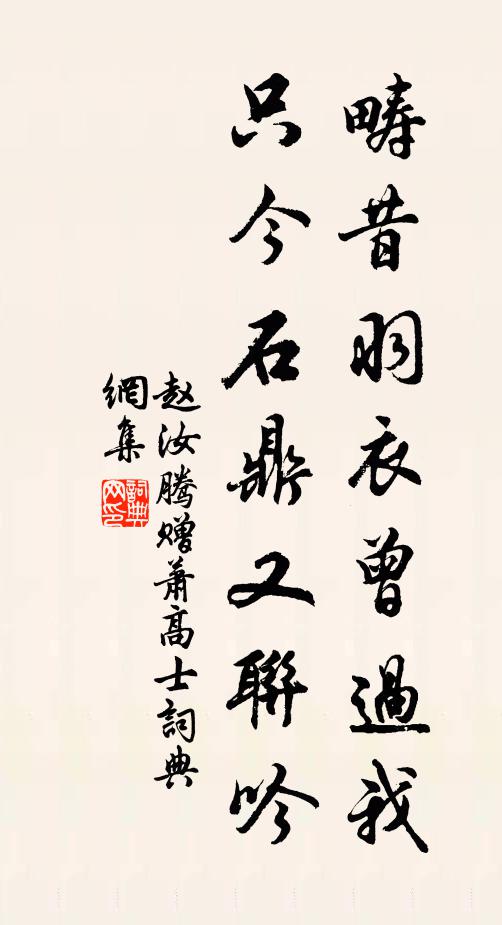 疇昔羽衣曾過我
只今石鼎又聯吟
赵汝騰赠萧高士詞典
網集
詞典網印